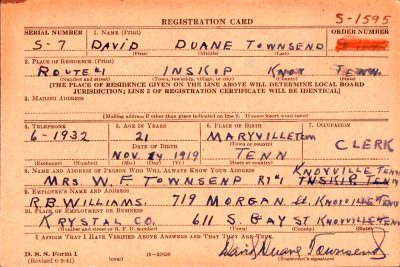 REGISTRATION CARD
S-1595
SERIAL NUMBER 1. NAME (Print) ORDER NUMBER
S-7 DAVID DUANE TOWNSEND
(First) (Middle) (Last)
2. PLACE OF RESIDENCE (Print)
ROUTE #1 INSKIP KNOX TENN.
(Number and street) (Town, township, village, or city) (County) (State)
[THE PLACE OF RESIDENCE GIVEN ON THE LINE ABOVE WILL DETERMINE LOCAL BOARD
JURISDICTION; LINE 2 OF REGISTRATION CERTIFICATE WILL BE IDENTICAL]
3. MAILING ADDRESS
[Mailing address if other than place indicated on line 2. If same insert word same]
4. TELEPHONE 5. AGE IN YEARS 6. PLACE OF BIRTH 7. OCCUPATION
6-1932 21 MARYVILLE
DATE OF BIRTH (Town or county)
NOV. 24 1919 TENN CLERK
(Mo.) (Day) (Yr.) (State or country)
8. NAME AND ADDRESS OF PERSON WHO WILL ALWAYS KNOW YOUR ADDRESS KNOXVILLE TENN
MRS. W. F. TOWNSEND R#1 INSKIP TENN
9. EMPLOYER'S NAME AND ADDRESS
R.B. WILLIAMS. 719 MORGAN St. KNOXVILLE TENN
10. PLACE OF EMPLOYMENT OR BUSINESS
KRYSTAL CO. 611 S. GAY ST KNOXVILLE TENN
(Number and street or R. F. D. number) (Town) (County) (State)
I AFFIRM THAT I HAVE VERIFIED ABOVE ANSWERS AND THAT THEY ARE TRUE.
D. S. S. Form 1
(Revised 6-9-41) (over) David Duane Townsend
(Registrant's signature)